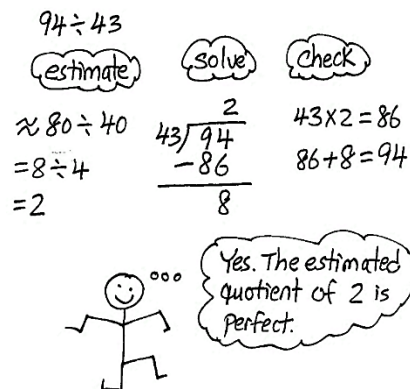 94÷43
estimate
≈ 80÷40
=8÷4
=2
solve
2
43)94
-86
8
check
43x2=86
86+8=94
Yes. The estimated
quotient of 2 is
perfect.